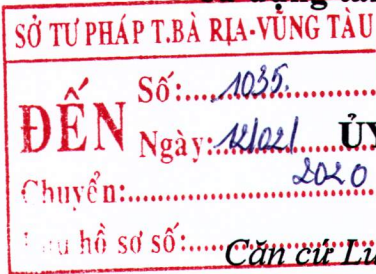 SỞ TƯ PHÁP T.BÀ RỊA-VŨNG TÀU
ĐẾN
Số:.....1035.......
Ngày:.12/02/
ỦY
2020
Chuyển:..................
hồ sơ số:.....
Căn cứ Lu